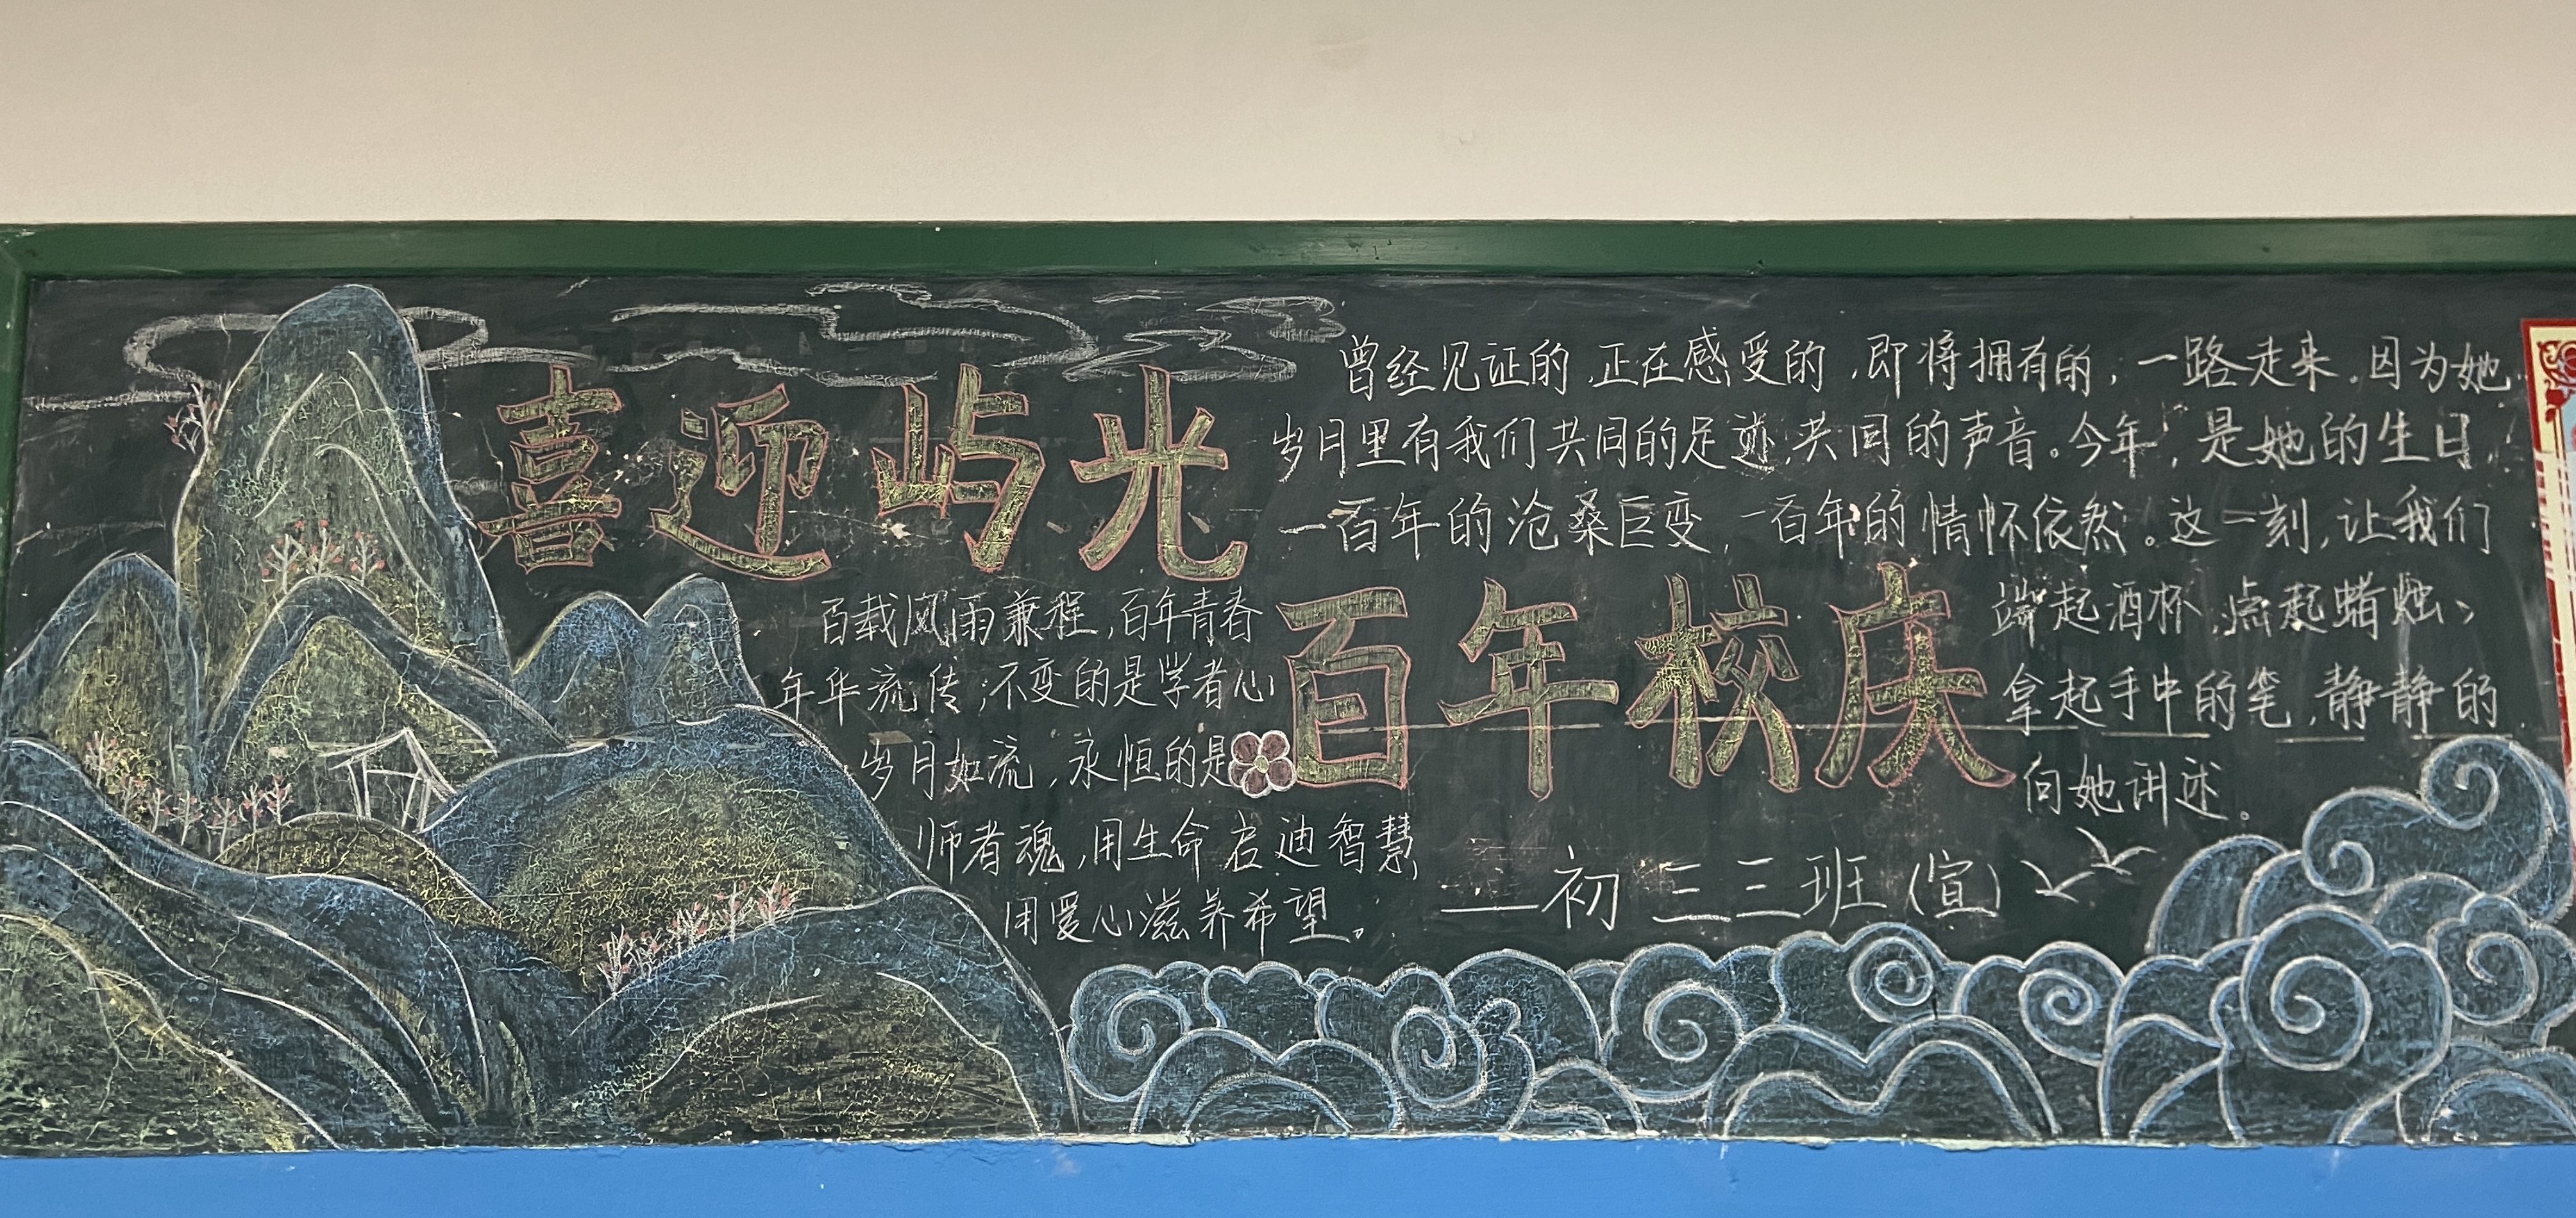 喜迎屿光
百年校庆
曾经见证的,正在感受的,即将拥有的,一路走来,因为她
岁月里有我们共同的足迹,共同的声音。今年,是她的生日,
一百年的沧桑巨变,一百年的情怀依然。这一刻,让我们
端起酒杯,点起蜡烛,
拿起手中的笔,静静的
向她讲述。
百载风雨兼程,百年青春
年华流传;不变的是学者心
岁月如流,永恒的是
师者魂,用生命启迪智慧
用爱心滋养希望。
——初三三班(宣)